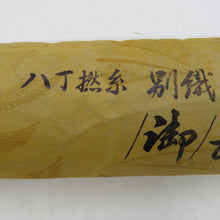 八丁撚糸 別織
御